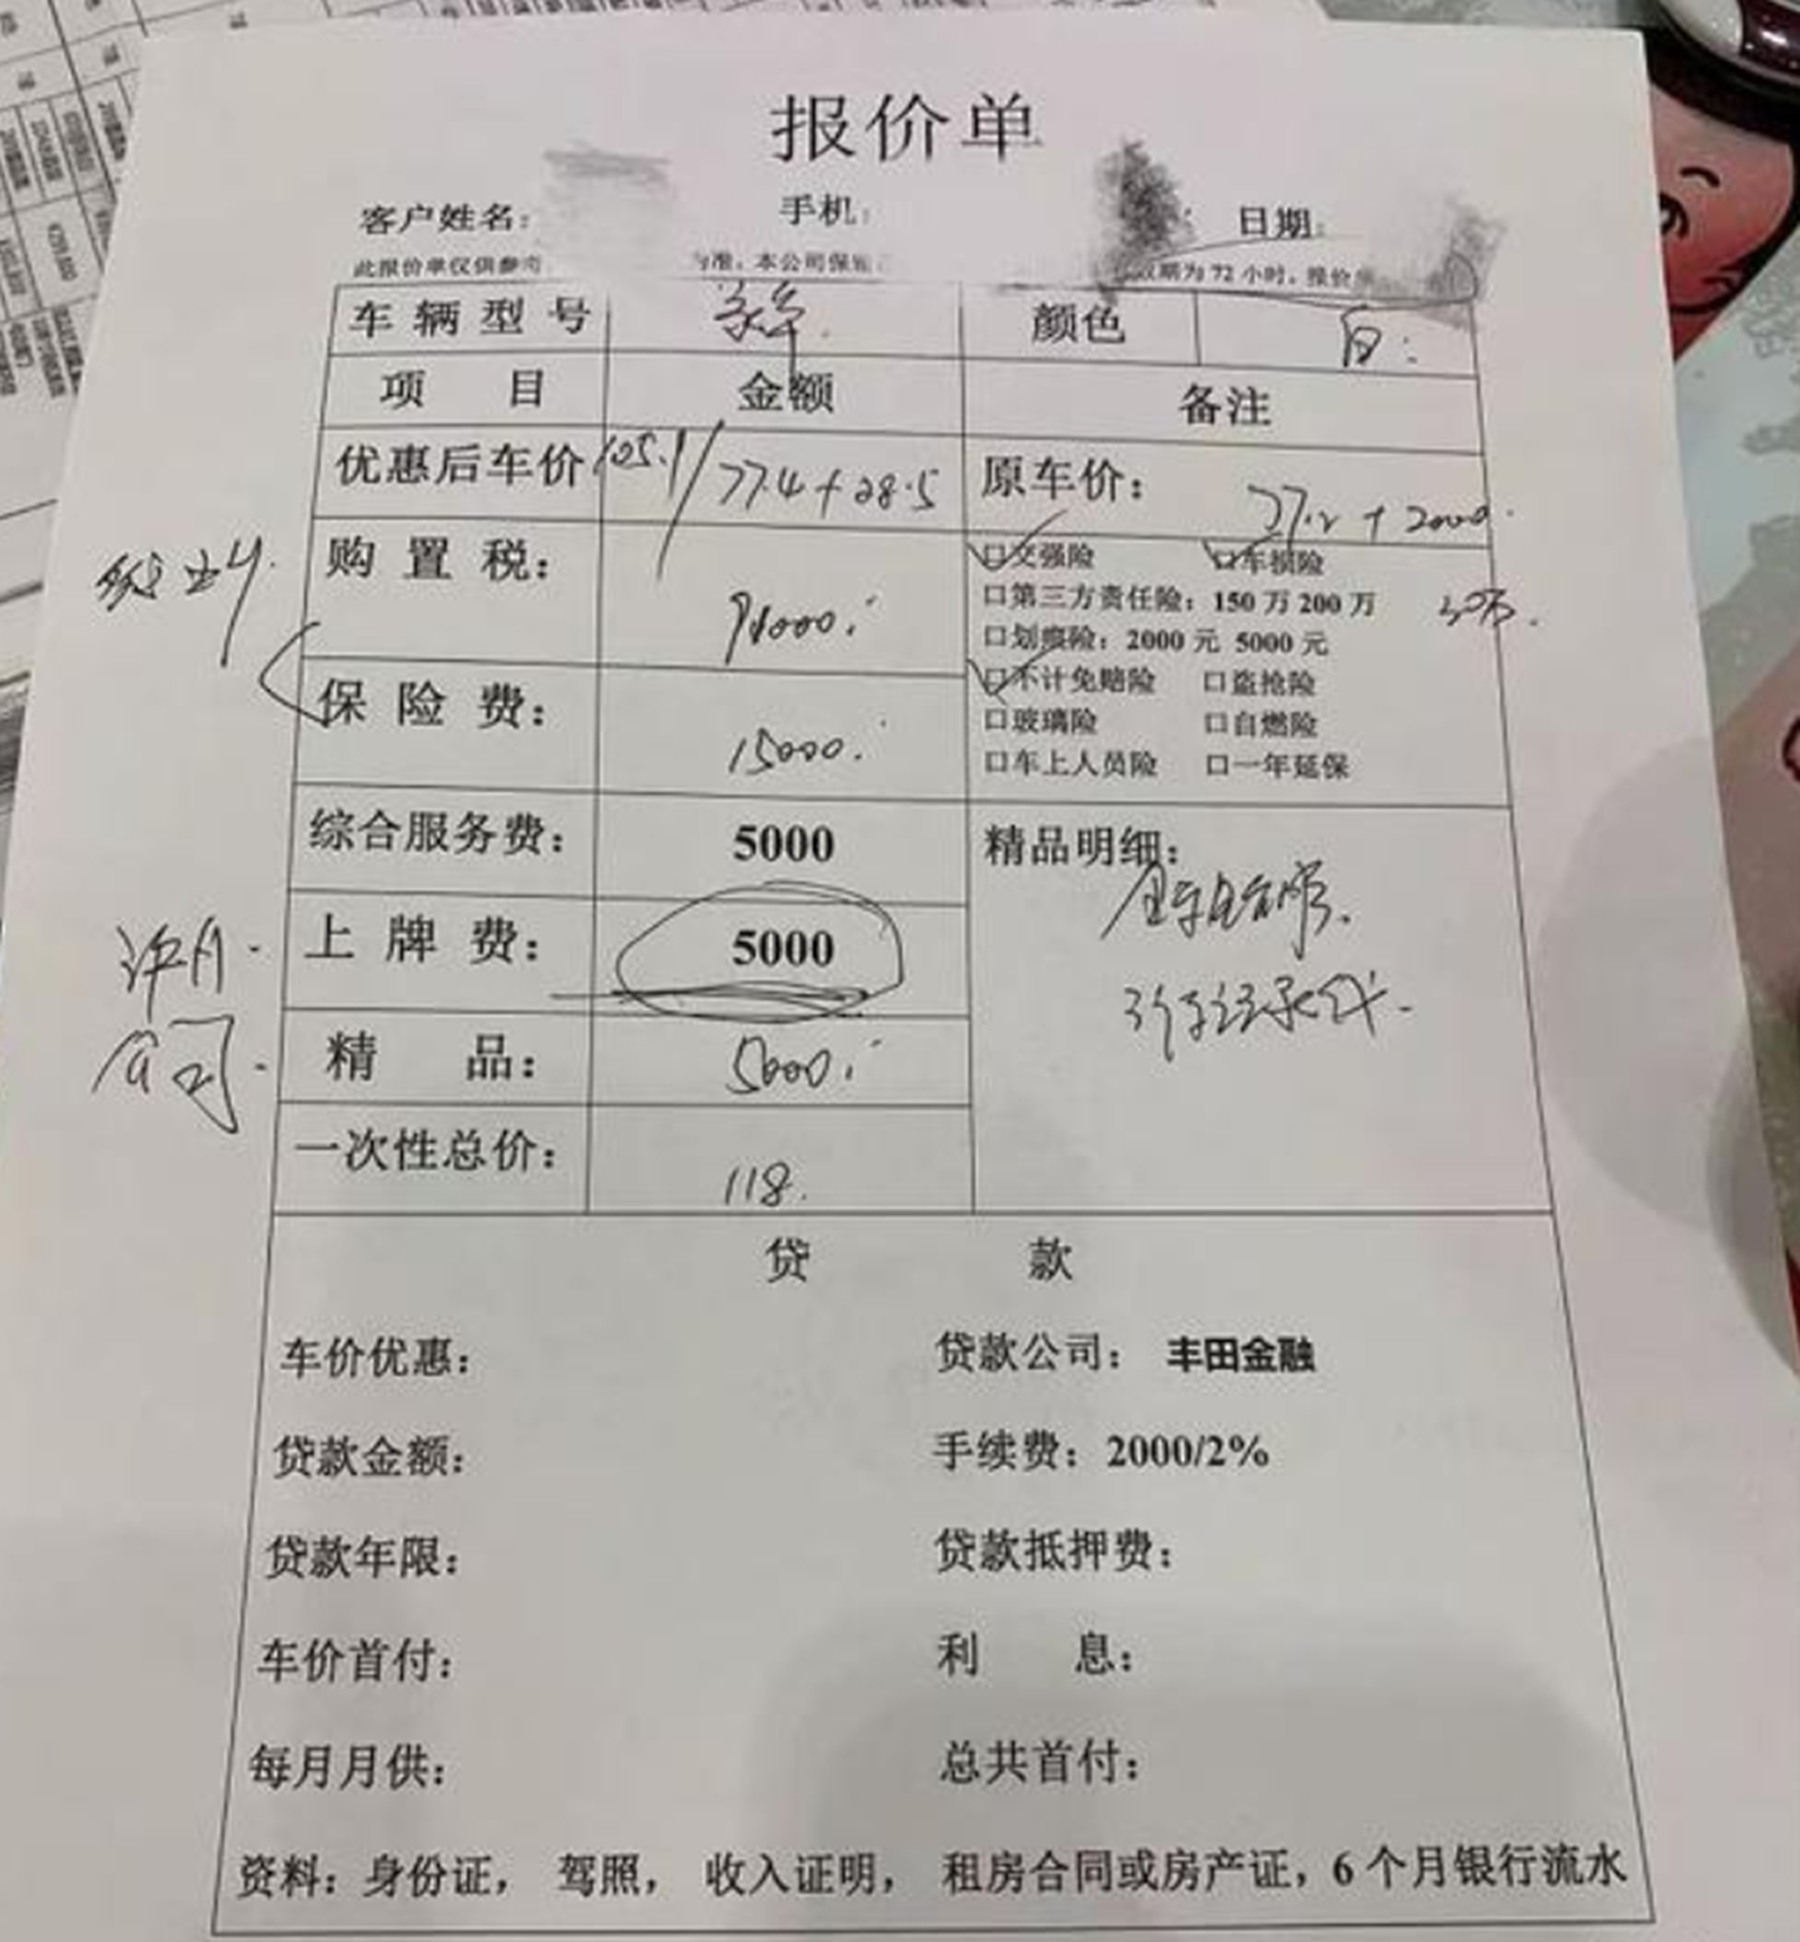 报价单
客户姓名： 手机： 日期：
此报价单仅供参考 为准，本公司保 期为72小时，报价
车辆型号 颜色 白
项 目 金额 备注
优惠后车价 105.1/77.4+28.5 原车价： 77.2+2000
购置税： □交强险 □车损险
□第三方责任险：150万 200万
□划痕险：2000元 5000元
保险费： 15000. □不计免赔险 □盗抢险
□玻璃险 □自燃险
□车上人员险 □一年延保
综合服务费： 5000 精品明细：
上牌费： 5000 行车记录仪
公司
精 品： 5000
一次性总价： 118.
贷 款
车价优惠： 贷款公司： 丰田金融
贷款金额： 手续费：2000/2%
贷款年限： 贷款抵押费：
车价首付： 利 息：
每月月供： 总共首付：
资料：身份证， 驾照， 收入证明， 租房合同或房产证，6个月银行流水